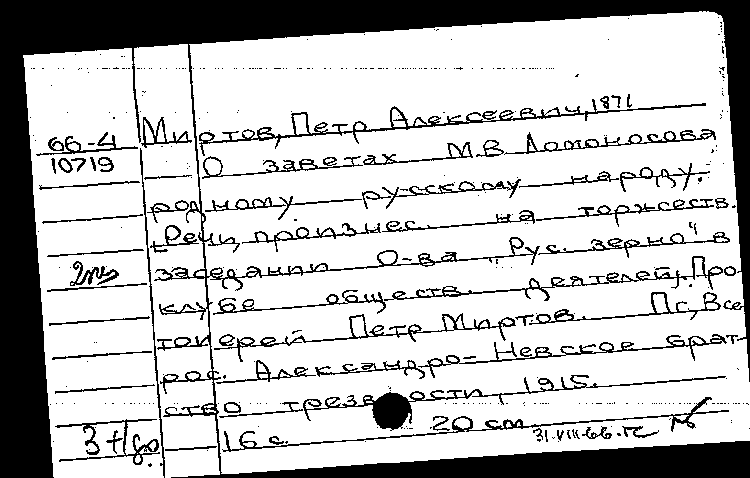 66-4 Миртов, Петр Алексеевич, 1871
10719 О заветах М.В Ломоносова
родному русскому народу.
[Речи, произнес. на торжеств.
2 заседании О-ва "Рус. зерно" в
клубе обществ. деятелей]. Про-
тоиерей Петр Миртов. Пг, Все-
рос. Александро-Невское брат-
ство трезвости, 1915.
16 с. 20 см
31.VIII-66.